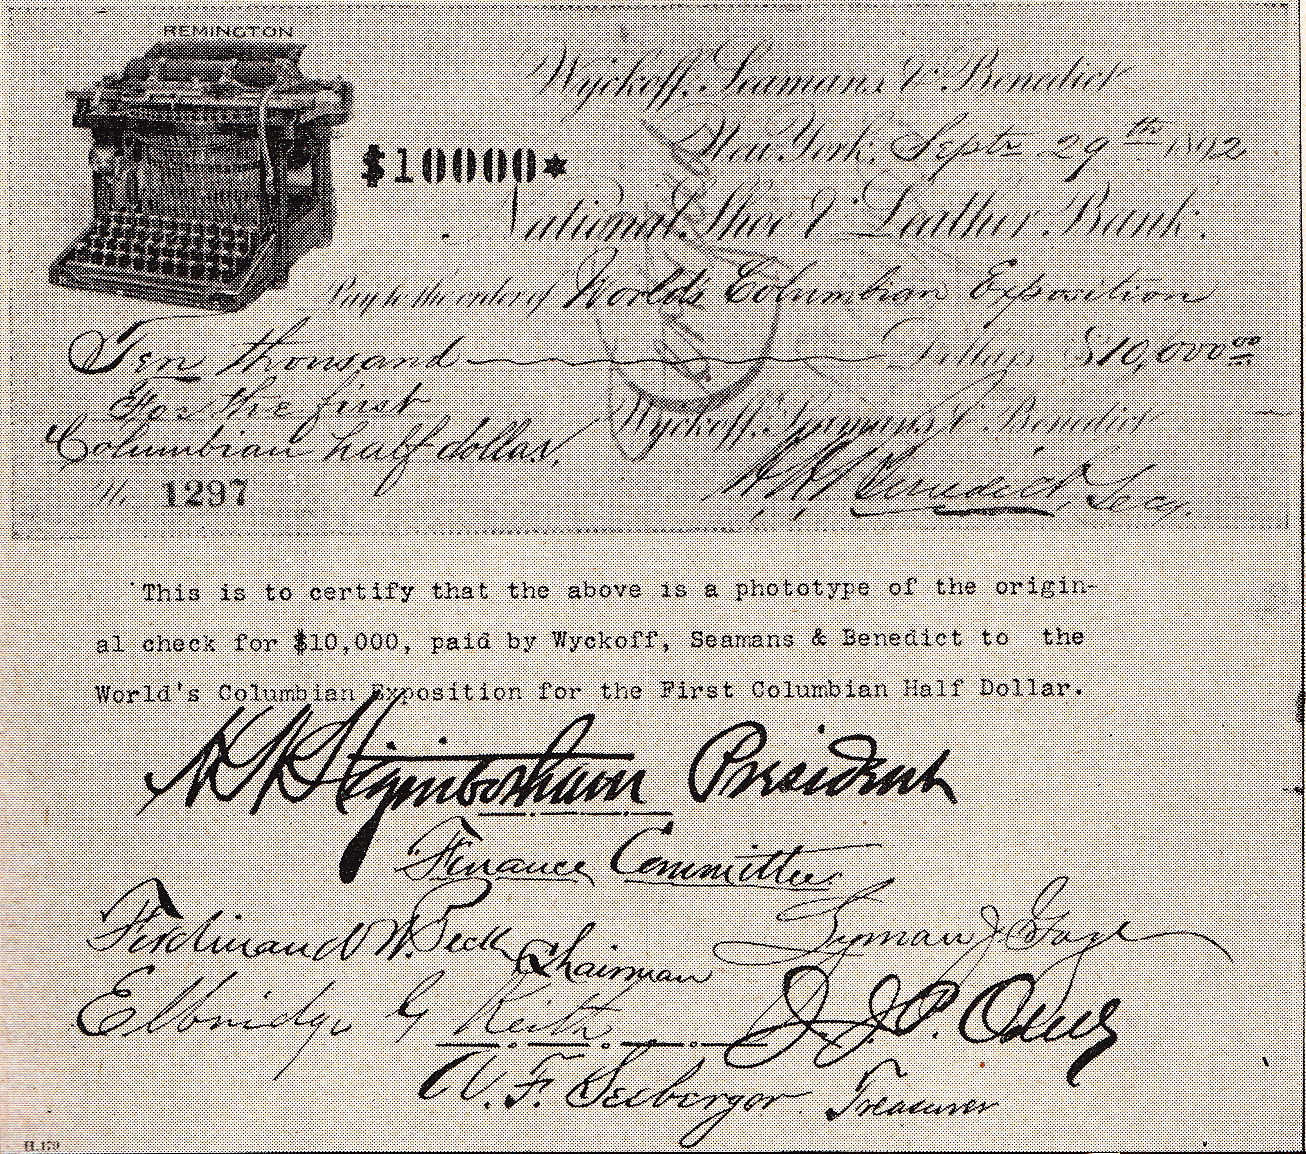 REMINGTON
Wyckoff, Seamans & Benedict
New York, Septr 29th 1892
$10000*
National Shoe & Leather Bank.
Pay to the order of World's Columbian Exposition
Ten thousand Dollars $10,000 00
For the first
Columbian half dollar.
Wyckoff, Seamans & Benedict
No. 1297
Benedict, Secy.
This is to certify that the above is a phototype of the origin-
al check for $10,000, paid by Wyckoff, Seamans & Benedict to the
World's Columbian Exposition for the First Columbian Half Dollar.
H N Higinbotham President
Finance Committee
Ferdinand W. Peck Chairman
Lyman J. Gage
Elbridge G Keith
A. F. Seeberger Treasurer
H.179